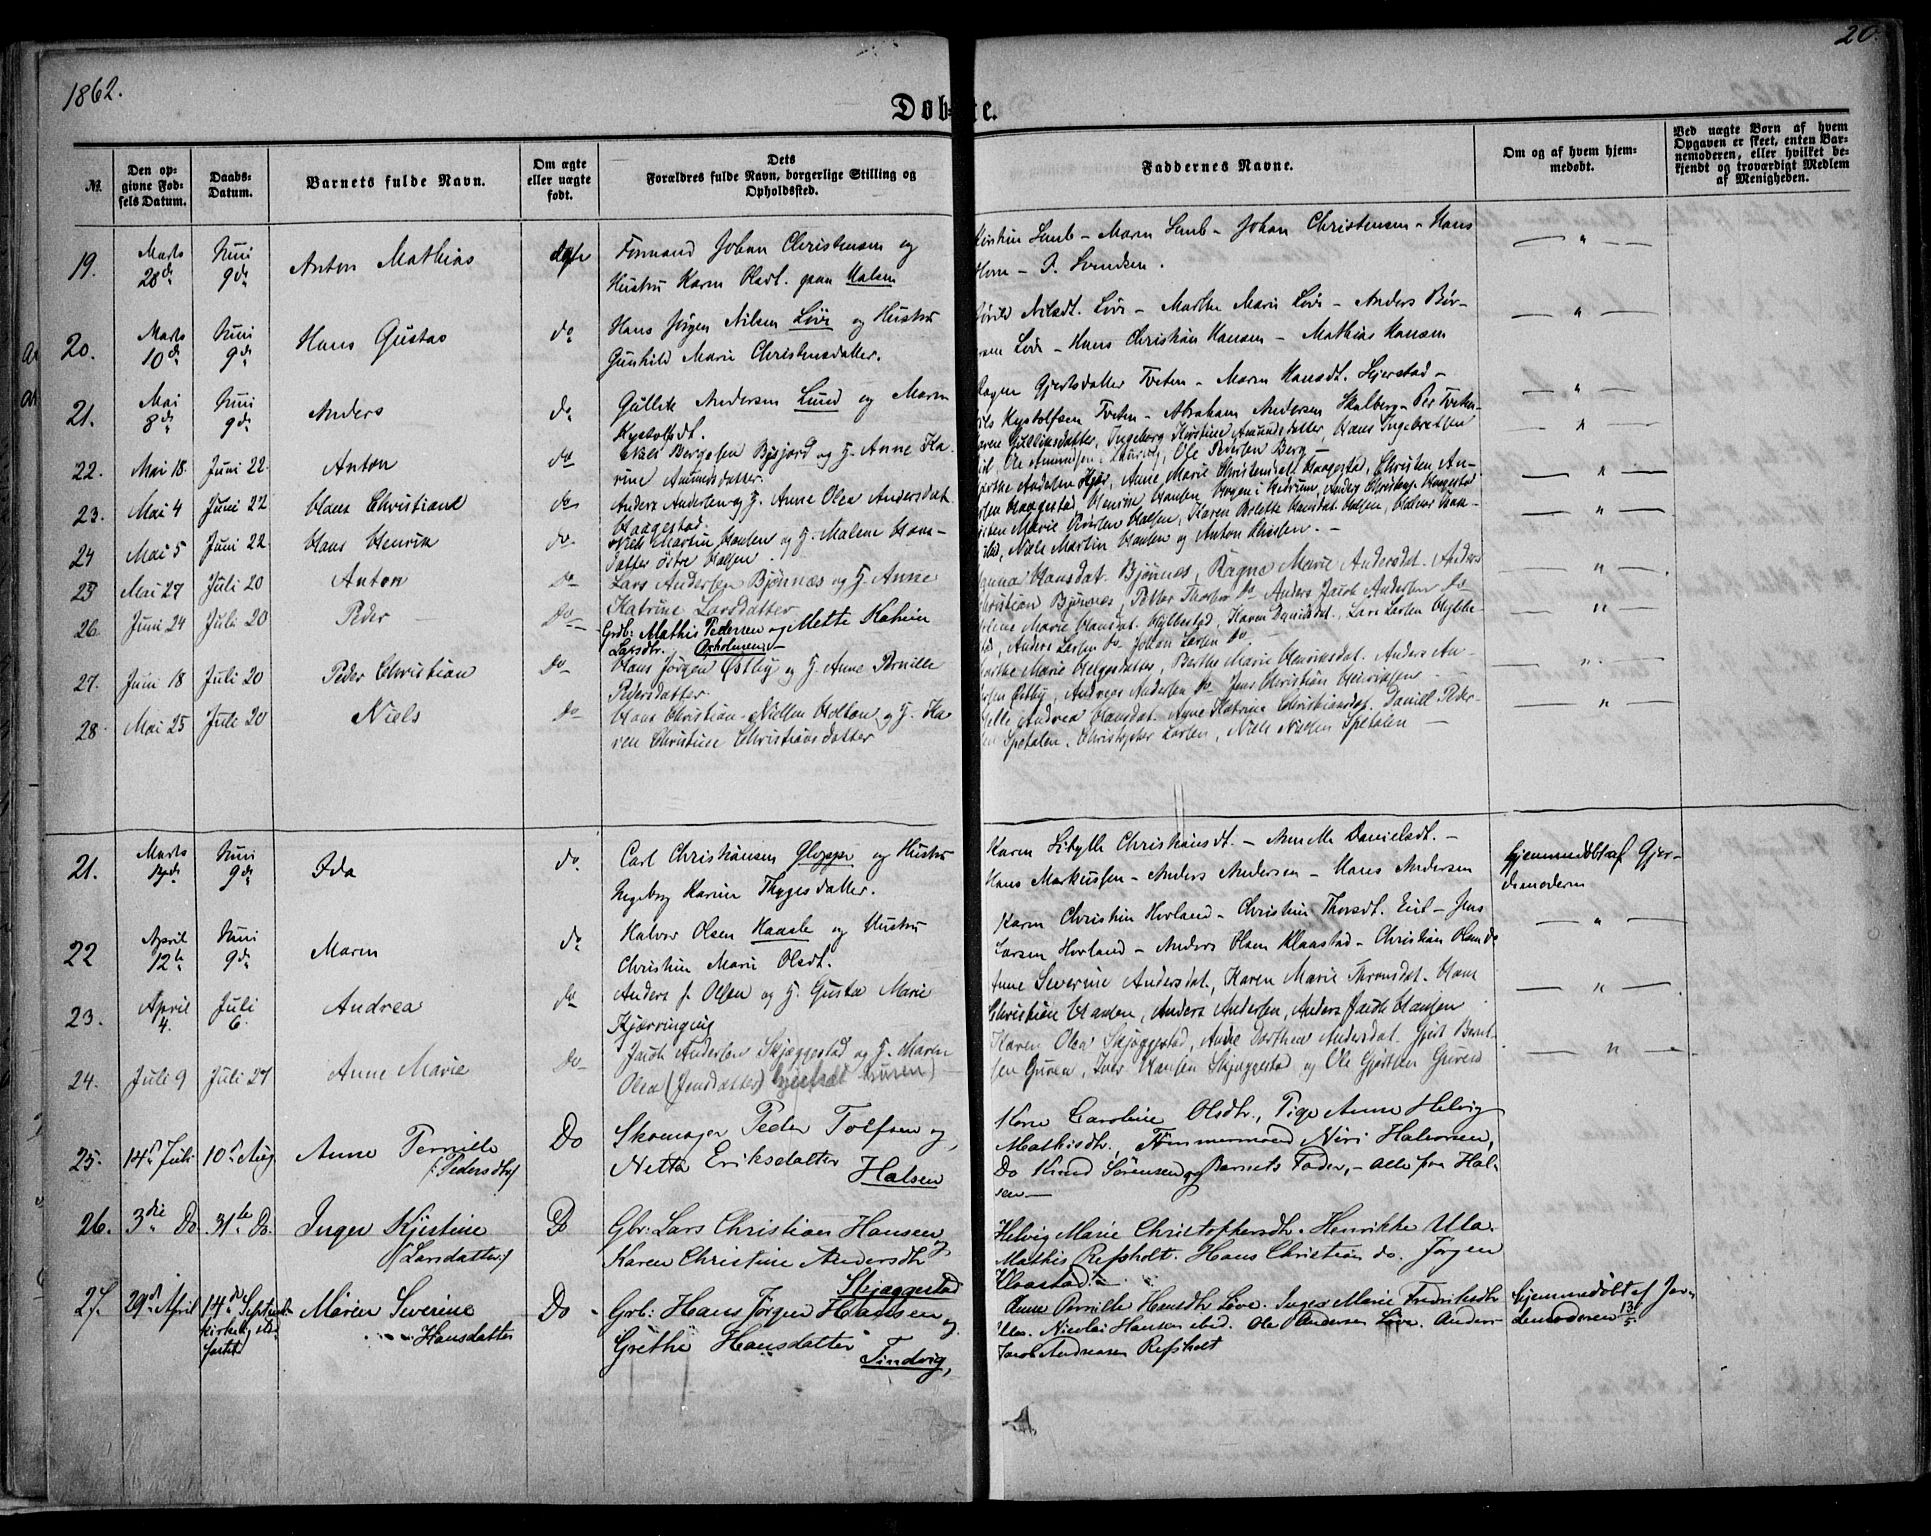 1862.
20.
Døbte.
№.
Den opgivne Fødselsdatum.
Daabs-Datum.
Barnets fulde Navn.
Om ægte eller uægte født.
Dets Forældres fulde Navn, borgerlige Stilling og Opholdssted.
Faddernes Navne.
Om og af hvem hjemmedøbt.
Ved uægte Børn af hvem Opgaven er skeet, enten Barnemoderen, eller hvilket bekjendt og troværdigt Medlem af Menigheden.
19. Marts 28de Juni 9de Anton Mathias ægte Formand Johan Christensen og
Hustru Karen Olsdt. paa Halsen
Lamb - Maren Lamb - Johan Christensen - Hans
Horn - P. Svendsen. — " —
20. Marts 10de Juni 9de Hans Gustav do Hans Jørgen Nilsen Løve og Hustru
Gunhild Marie Christensdatter.
Nilsdt. Løve - Marthe Marie Løve - Anders Bør-
sen Løve - Hans Christian Hansen - Mathias Hansen — " —
21. Mai 8de Juni 9de Anders do Gullik Andersen Lund og Maren
Kystolfsdt.
Gjertsdatter Tveten - Maren Hansdt. Hjerstad -
Kystolfsen Tveten - Abraham Andersen Skalberg - Per Tveten — " —
22. Mai 18. Juni 22. Anton do Niels Bergesen Bøsjord og H. Anne Ka-
rine Amundsdatter.
Gulliksdatter, Ingeborg Kirstine Amundsdatter, Hans Ingebretsen
Ole Amundsen, Ole Pedersen Berg — " —
23. Mai 4 Juni 22 Hans Christian do Anders Andersen og H. Anne Olea Andersdat.
Haagestad.
Andersen Hjær, Anne Marie Christensdat. Haagestad, Christen An-
Haagestad, Henrik Hansen Hogen i Hedrum, Anders Christens. Haagestad — " —
24 Mai 5 Juni 22. Hans Henrik do Niels Martin Hansen og H. Malene Hans-
datter østre Halsen
Marie Iversen Halsen, Karen Belette Hansdat. Halsen,
Niels Martin Hansen og Anton Knudsen. — " —
25 Mai 27 Juli 20 Anton Do Lars Andersen Bjønnæs og H. Anne
Katrine Larsdatter
Hansdat. Bjønnæs, Ragne Marie Andersdat. Anders
Christian Bjønnæs, Petter Do Anders Jacob Andersen Do — " —
26. Juni 24 Juli 20 Peder Do Grb. Mathis Pedersen og Mette Katrin
Larsdtr. Oxholmen
Marie Hansdat. Hylbestad, Karen Larsdat. Lars Larsen Hylbe-
Anders Larsen Do Johan Larsen Do — " —
27. Juni 18 Juli 20 Peder Christian Do Hans Jørgen Østby og H. Anne Pernille
Pedersdatter
Marthe Marie Helgesdatter, Berthe Marie Henriksdat. Anders An-
dersen Østby, Andreas Andersen Do Jens Christian Henriksen — " —
28. Mai 25 Juli 20 Niels Do Hans Christian Nielsen Holtan og H. Ka-
ren Christine Christiansdatter
Andrea Hansdat. Anne Katrine Christiansdat. Daniel Peder-
sen Spetalen, Christopher Larsen, Niels Nielsen Spetalen — " —
21. Marts Juni 9de Ida do. Carl Christiansen Gloppe og Hustru
Ingeborg Karine Thygesdatter.
Karen Sibylle Christiansdt. - Anne M. Danielsdt. -
Hans Markussen - Anders Andersen - Hans Andersen
hjemmedøbt af Gjor-
demoderen
22 April 12te Juni 9de Maren do Halvor Olsen Kaasle og Hustru
Christine Marie Olsdt.
Karen Christine Hovland - Christine Thorsdt. Eeit - Jens
Larsen Hovland - Anders Olsen Klaastad - Christian Olsen do — " —
23. April 4. Juli 6. Andrea do Anders J. Olsen og H. Gusta Marie
Kjærringvig
Anne Severine Andersdat., Karen Marie Thronsdat. Hans
Christian Hansen, Anders Andersen, Anders Jacob Hansen — " —
24. Juli 9 Juli 27 Anne Marie Do Jacob Andersen Skjæggestad og H. Maren
Olea (Jensdatter)
Karen Olea Skjæggestad, Anne Dorthea Andersdat. Gjert Bernt-
sen Guren, Iver Hansen Skjæggestad og Ole Gjertsen Guren — " —
25. 14de Juli 10de Aug. Anne Pernille
(Pedersdtr) Do Skomager Peder Tolfsen og
Netta Eriksdatter
Halsen
Kone Caroline Olsdtr., Pige Anne Helvig
Mathisdtr., Tømmermand Niri Halvorsen,
Do Knud Sørensen og Barnets Fader, - alle fra Hal-
sen —
26. 3die Do. 31te Do. Inger Kjestine
(Larsdatter) Do Gbr: Lars Christian Hansen og
Karen Christine Andersdtr
Skjæggestad
Helvig Marie Christoffersdtr. Henrikke Ula.
Mathis Refsholt. Hans Christian do. Jørgen
Klaastad.
27. 29de April 14de Septemb. Maren Severine
Hansdatter Do - Grb: Hans Jørgen Hansen og
Grethe Hansdatter
Tindvig,
Anne Pernille Hansdtr Løve. Inger Marie Fredriksdtr
Ula. Nicolai Hansen ibid. Ole Andersen Løve. Anders
Jacob Andreasen Refsholt
hjemmedøbt af Jor-
demoderen 13/5